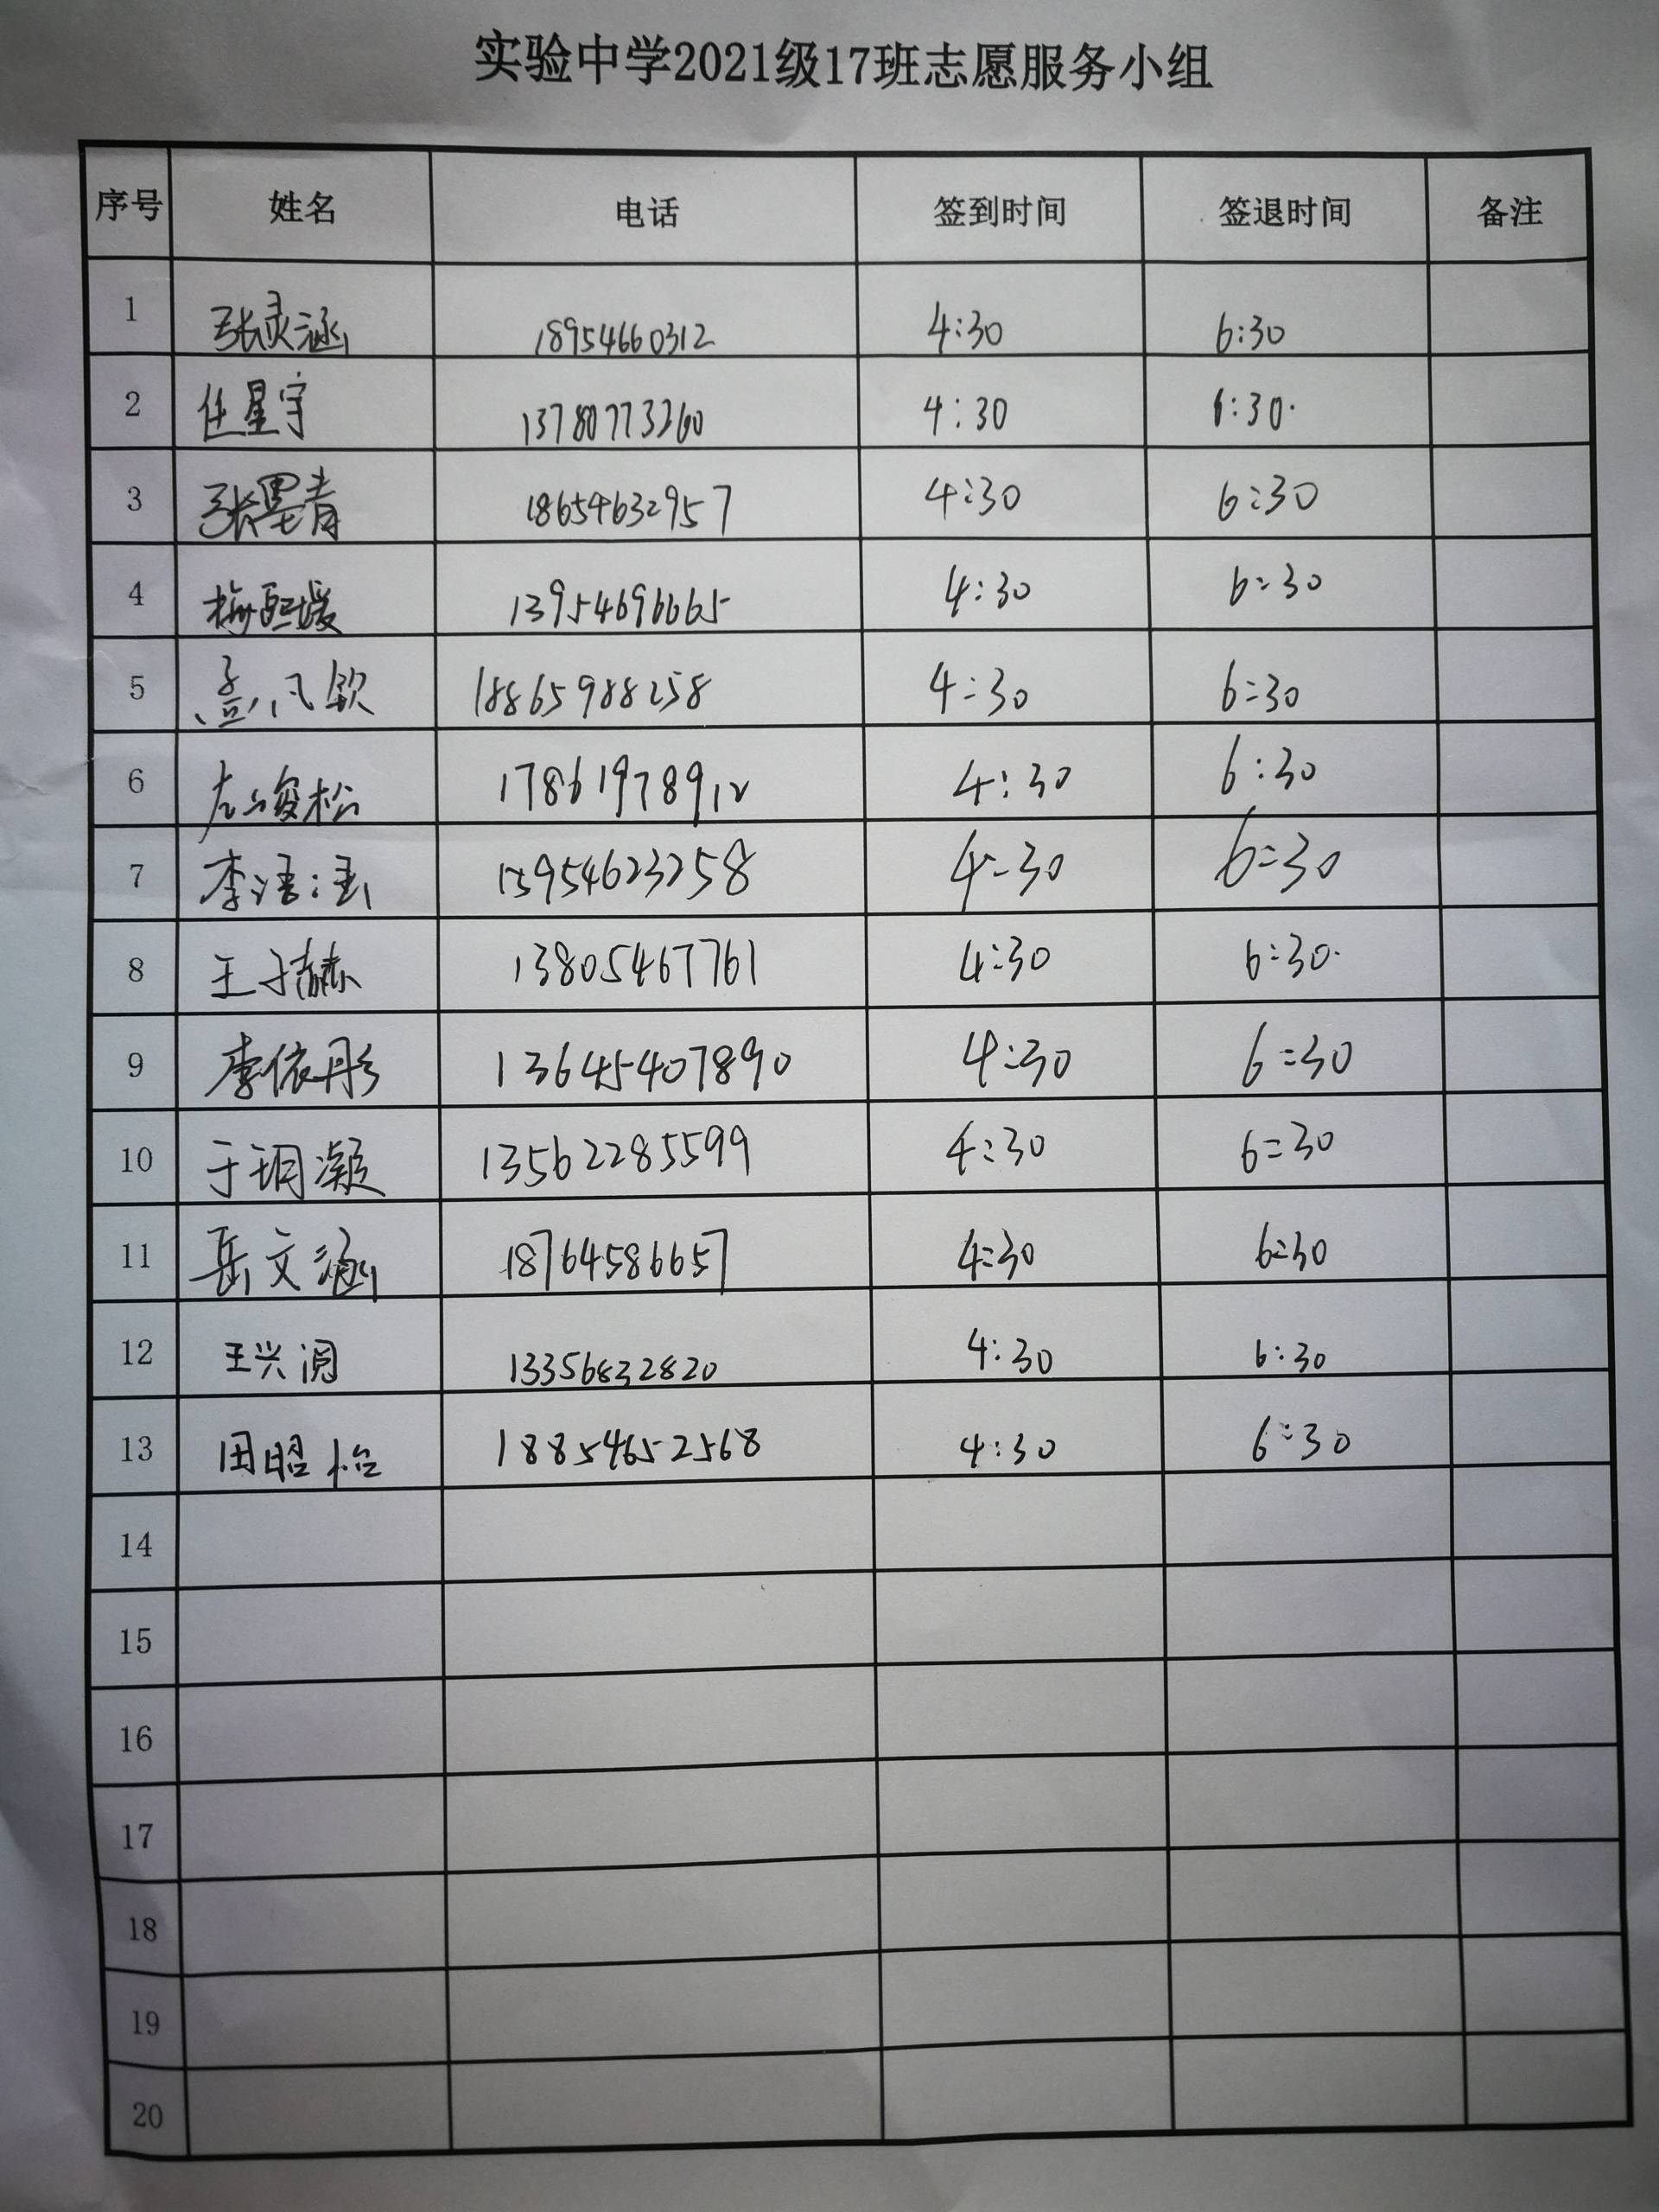 实验中学2021级17班志愿服务小组
序号 姓名 电话 签到时间 签退时间 备注
1 张灵涵 18954660312 4:30 6:30
2 任星宇 13780773260 4:30 6:30
3 张墨青 18654632957 4:30 6:30
4 梅熙媛 13954696665 4:30 6:30
5 孟凡钦 18865988258 4:30 6:30
6 左峻松 17861978912 4:30 6:30
7 李浯 15954623258 4:30 6:30
8 王子赫 13805467761 4:30 6:30
9 李依彤 13645407890 4:30 6:30
10 于玥凝 13562285599 4:30 6:30
11 岳文涵 18764586657 4:30 6:30
12 王兴润 13356832820 4:30 6:30
13 田昭怡 18854652568 4:30 6:30
14
15
16
17
18
19
20